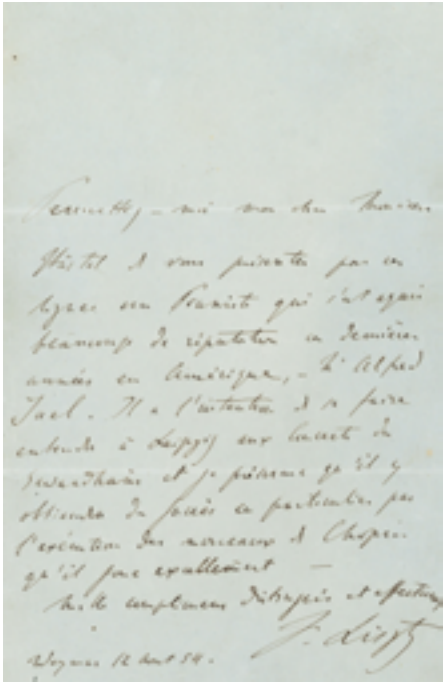 Permettez-moi mon cher Monsieur
Härtel de vous présenter par ces
lignes un Pianiste qui s'est acquis
beaucoup de réputation ces dernières
années en Amérique, – Mr Alfred
Jael. Il a l'intention de se faire
entendre à Leipzig aux Concerts du
Gewandhaus et je présume qu'il y
obtiendra du succès en particulier par
l'exécution des morceaux de Chopin
qu'il joue excellemment —
Mille complimens distingués et affectueux
F. Liszt
Weymar 12 Aout 54.